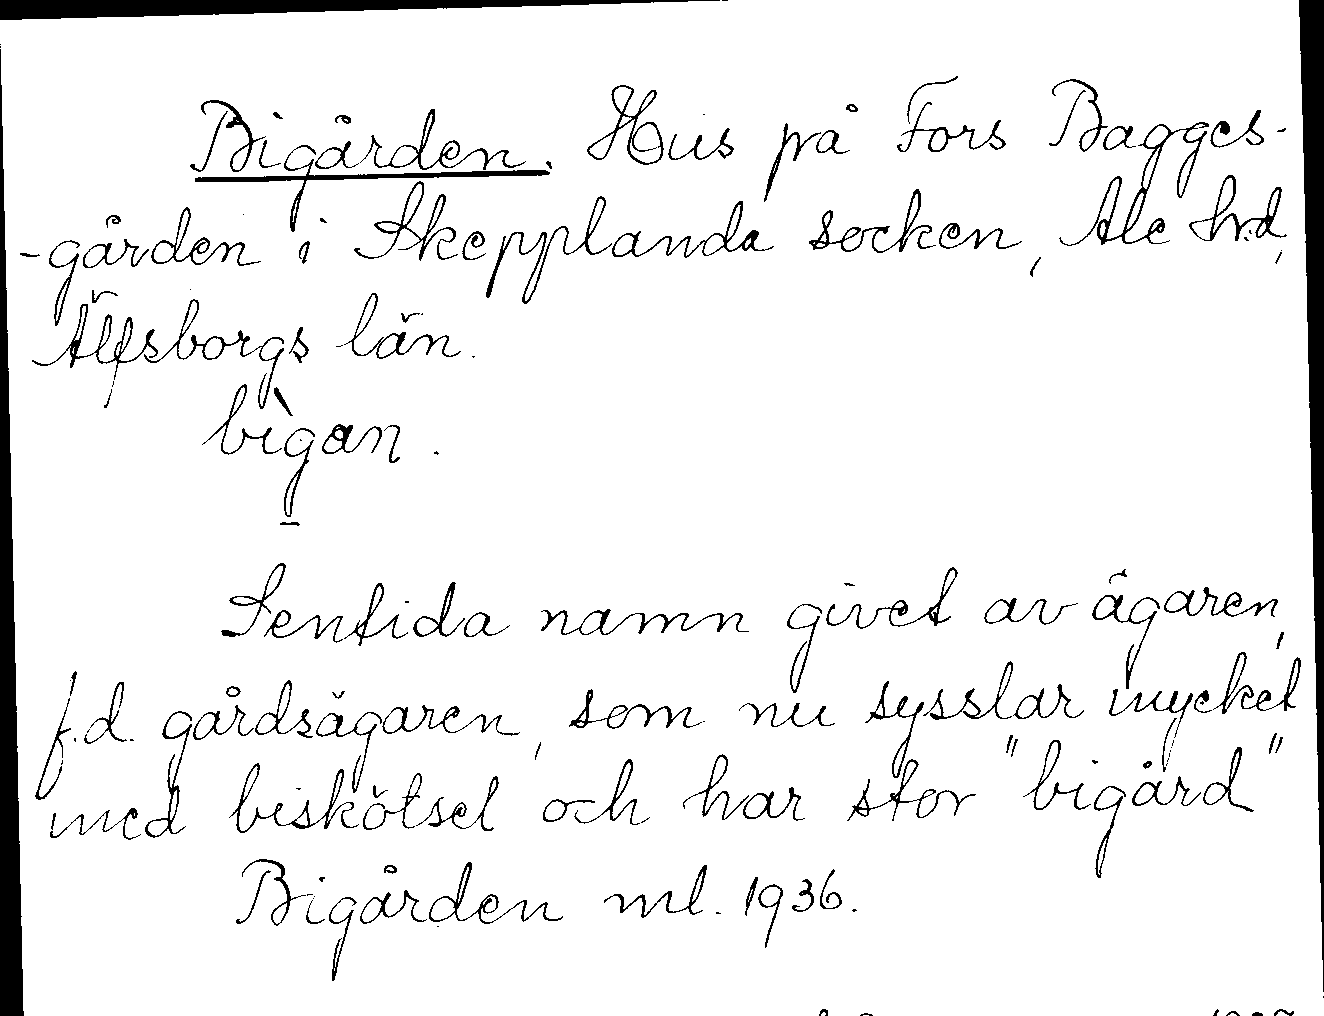 Bigården. Hus på Fors Bagges-
-gården i Skepplanda socken, Ale hrd,
Älfsborgs län.
bìgan.
Sentida namn givet av ägaren,
f.d. gårdsägaren, som nu sysslar mycket
med biskötsel och har stor "bigård"
Bigården ml. 1936.